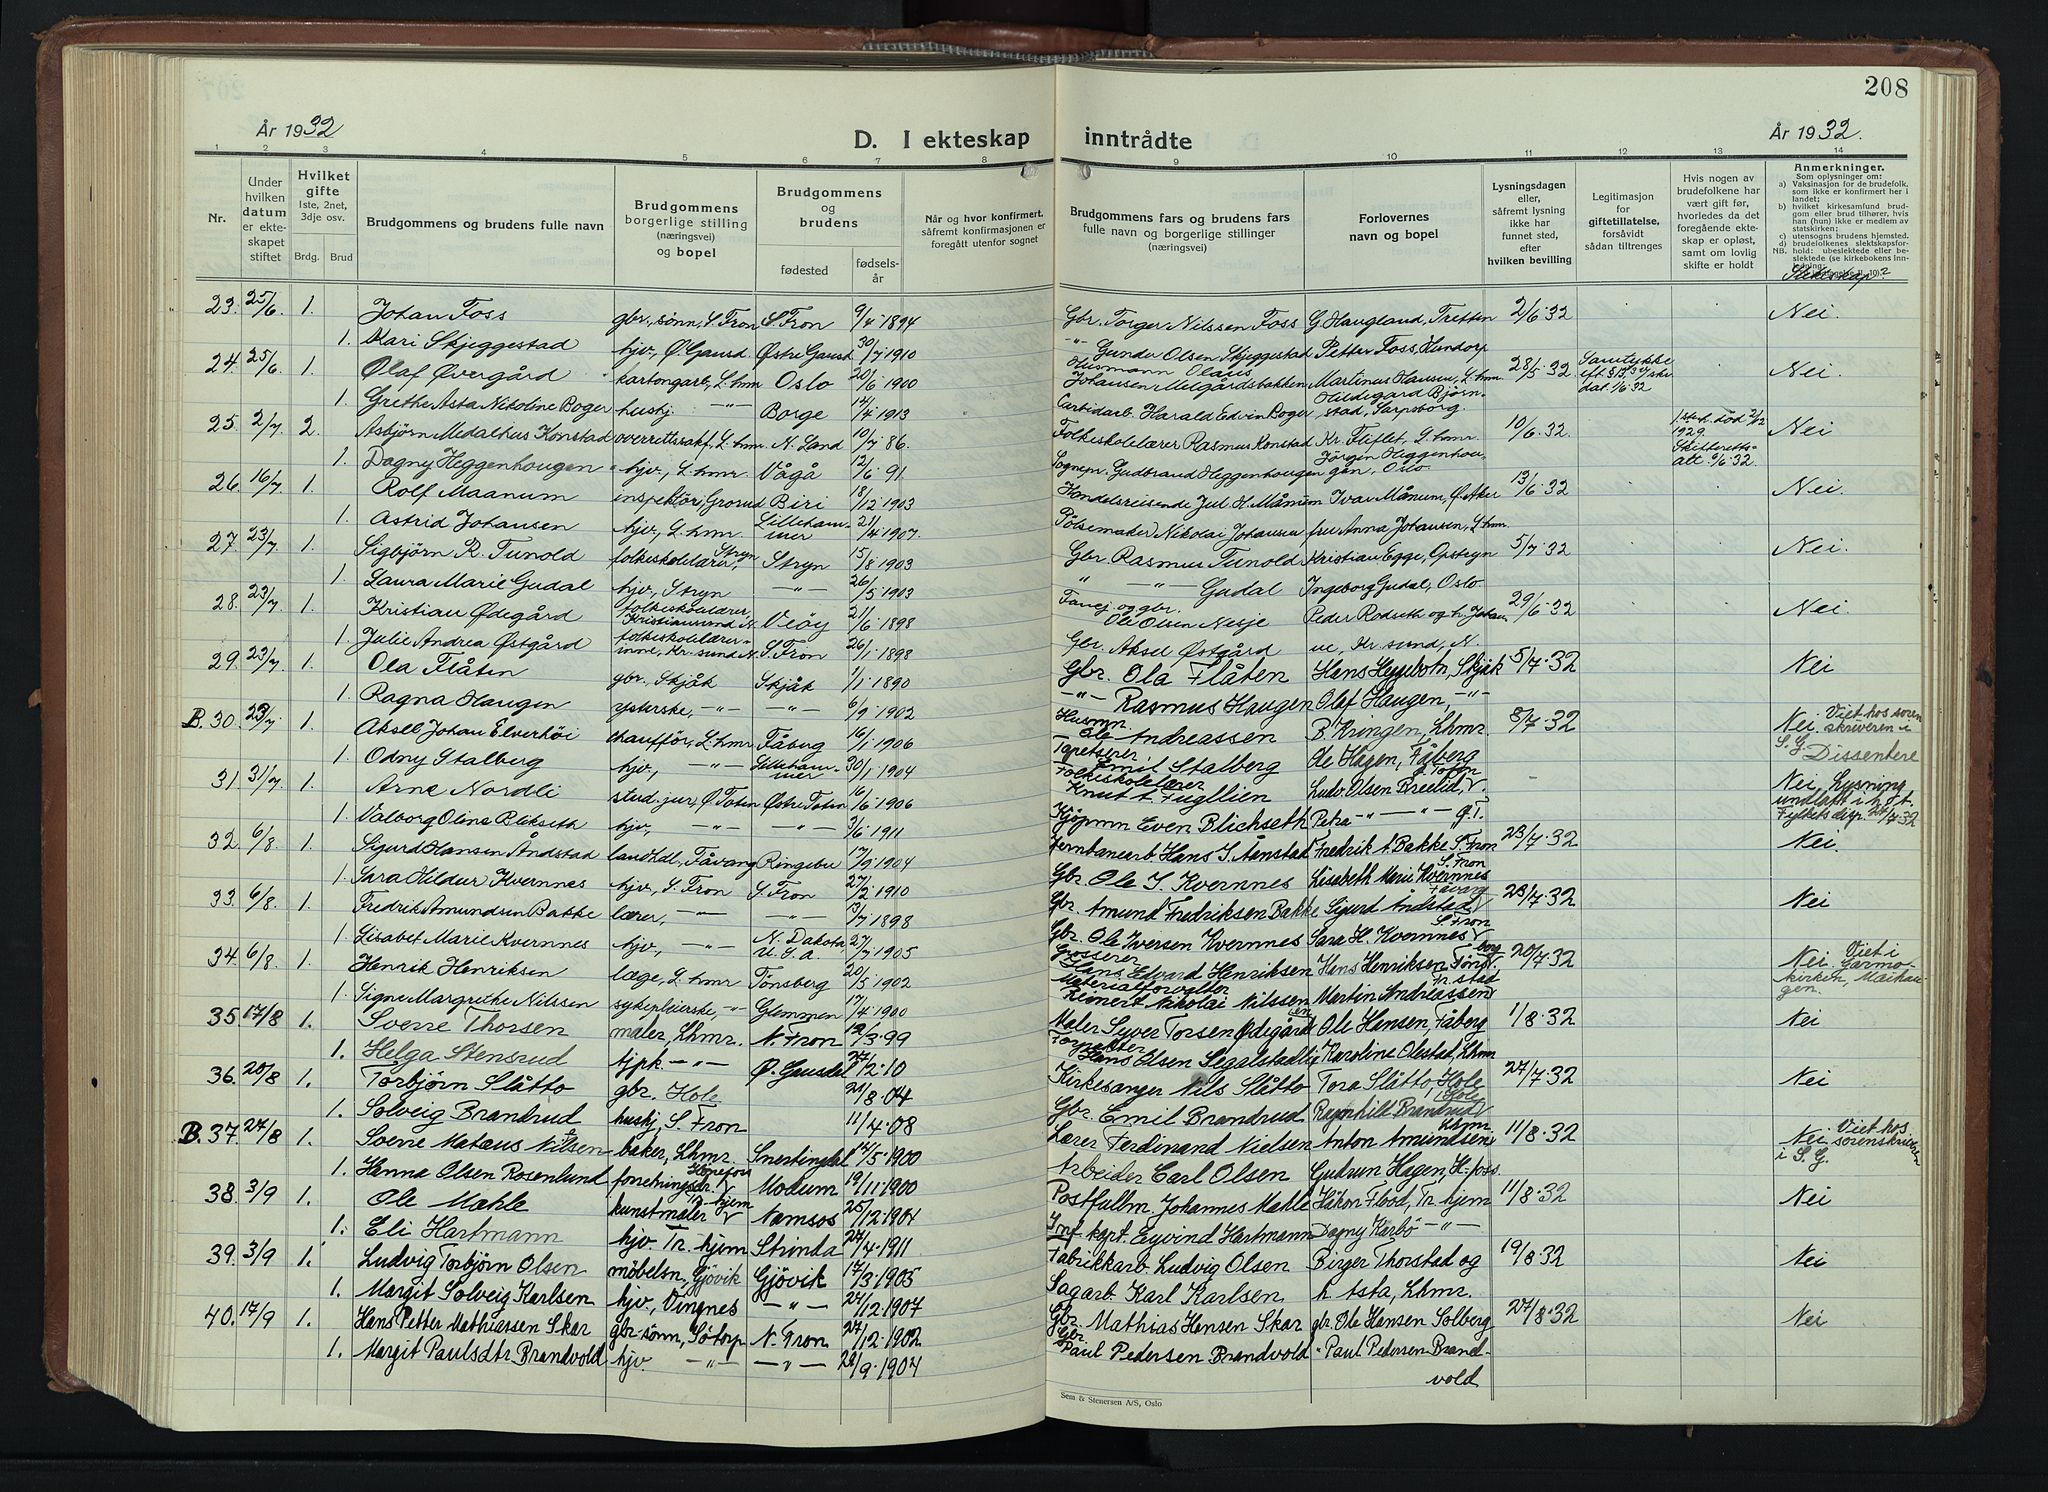 208
År 1932
D. I ekteskap inntrådte
År 1932.
1 2 3 4 5 6 7 8 9 10 11 12 13 14
Nr.
Under hvilken datum er ekteskapet stiftet
Hvilket gifte 1ste, 2net, 3dje osv.
Brdg. Brud
Brudgommens og brudens fulle navn
Brudgommens borgerlige stilling (næringsvei) og bopel
Brudgommens og brudens
fødested
fødselsår
Når og hvor konfirmert, såfremt konfirmasjonen er foregått utenfor sognet
Brudgommens fars og brudens fars fulle navn og borgerlige stillinger (næringsvei)
Forlovernes navn og bopel
Lysningsdagen eller, såfremt lysning ikke har funnet sted, efter hvilken bevilling
Legitimasjon for giftetillatelse, forsåvidt sådan tiltrenges
Hvis nogen av brudefolkene har vært gift før, hvorledes da det foregående ekteskap er opløst, samt om lovlig skifte er holdt
Anmerkninger.
Som oplysninger om:
a) Vaksinasjon for de brudefolk, som ikke er konfirmert her i landet;
b) hvilket kirkesamfund brudgom eller brud tilhører, hvis han (hun) ikke er medlem av statskirken;
c) utensogns brudens hjemsted.
d) brudefolkenes slektskapsforhold: ubeslektede eller beslektede (se kirkebokens innledning;
Slektskap?
23. 25/6 1. Johan Foss gbr., sønn, S. Fron S. Fron 9/4 1894 Gbr. Torger Nilssen Foss G. Haugland, Tretten 2/6 32 Nei.
1. Kari Skjeggestad hjv., Ø. Gausd. Østre Gausd. 30/7 1910 -"- Gunder Olsen Skjeggestad Petter Foss, Hundorp
24. 25/6 1. Olaf Øvergård kartongarb., L.hmr Oslo 20/6 1900 Husmann Olaus Johansen Melgårdsbakken Martinus Hansen, L.hmr 28/5 32 Samtykke dat. 1/6 32 Nei.
1. Grethe Asta Nikoline Boger hushj. -"- Borge 14/4 1913 Carbidarb. Harald Edvin Boger Hildegard Bjørnstad, Sarpsborg.
25. 2/7 2. Asbjørn Medalhus Konstad overrettssakf., L.hmr N. Land 10/7 86. Folkeskolelærer Rasmus Konstad Kr. Fliflet, L.hmr 10/6 32. død 2/12 1929. Skifteretts-att. 9/6 32. Nei
1. Dagny Heggenhougen hjv., L.hmr. Vågå 12/6 91 Sognepr. Gudbrand Heggenhougen Jørgen Heggenhougen, Oslo
26. 16/7 1. Rolf Maanum inspektør, Grorud Biri 18/12 1903 Handelsreisende Jul. H. Månum Ivar Månum, Ø. Aker 13/6 32 Nei.
1. Astrid Johansen hjv., L.hmr. Lillehammer 21/4 1907 Pølsemaker Nikolai Johansen fru Anna Johansen, L.hmr.
27. 23/7 1. Sigbjørn R. Tunold folkeskolelærer, Stryn Stryn 15/8 1903 Gbr. Rasmus Tunold Kristian Egge, Opstryn 5/7 32 Nei.
1. Laura Marie Gudal hjv., Stryn -"- 26/5 1903 " -"- Gudal Ingeborg Gudal, Oslo
28. 23/7 1. Kristian Ødegård folkeskolelærer, Kristiansund N. Veöy 21/6 1898 og gbr. Ole Olsen Nesje Peder Rodseth og h. Johanne, Kr.sund, N. 29/6 32 Nei.
1. Julie Andrea Østgård folkeskolelærerinne, Kr.sund N. S. Fron 26/1 1898 Gbr. Aksel Østgård
29. 23/7 1. Ola Flåten gbr., Skjåk Skjåk 1/1 1890 Gbr. Ola Flåten Hans Heggebotn, Skjåk 5/7.32 Nei
1. Ragna Haugen ysterske, -"- -"- 6/9 1902 -"- Rasmus Haugen Olaf Haugen, -"-
B. 30. 23/7. 1. Aksel Johan Elverhöi chauffør, L.hmr. Fåberg 16/1 1906 Husmn. Ole Andreassen B. Kringen, Lhmr. 8/7.32 Nei Viet hos sorenskriveren i S. G. Dissentere
1. Odny Stalberg hjv., -"- Lillehammer 30/1 1904 Tapetserer Emil Stalberg Ole Hagen, Fåberg
31. 31/7 1. Arne Nordli stud. jur., Ø. Toten Østre Toten 16/6 1906 Folkeskolelærer Knut t. Fugllien Ludv. Olsen Breilid, Ø. Toten Nei, Lysning undlatt i h.t. Fylkets disp. 28/7.32
1. Valborg Oline Blikseth hjv., -"- -"- 3/6 1911 Kjøpmn Even Blichseth Petra -"- -"- Ø.T.
32. 6/8 1. Sigurd Hansen Åndstad landhdl., Fåvang Ringebu 17/9 1904 Jernbanearb. Hans S. Aanstad Fredrik A. Bakke S. Fron 23/7.32 Nei.
1. Sara Hildur Kvernnes hjv., S. Fron S. Fron 27/2 1910 Gbr. Ole I. Kvernnes Lisabeth Marie Kvernnes S. Fron
33. 6/8. 1. Fredrik Amundsen Bakke lærer, -"- -"- 3/7 1898 Gbr. Amund Fredriksen Bakke Sigurd Åndstad Fåvang 23/7.32 Nei
1. Lisabet Marie Kvernnes hjv., -"- N. Dakota U.S.a. 27/7 1905 Gbr. Ole Iversen Kvernnes Sara H. Kvernnes S. Fron
34. 6/8. 1. Henrik Henriksen læge, L.hmr Tønsberg 20/5 1902 Grosserer Hans Edvard Henriksen Hans Henriksen Tönsberg 20/7.32 Nei Viet i Garmo kirke, Maihaugen.
1. Signe Margrethe Nilssen sykepleierske, -"- Glemmen 17/4 1900 Materialforvalter Reinert Nikolai Nilssen Martin Andreassen Fr.stad
35. 17/8 1. Sverre Thorsen maler, Lhmr. N. Fron 12/3.99 Maler Syver Torsen Ødegården Ole Hansen, Fåberg 1/8.32 Nei
1. Helga Stensrud tjpk -"- Ø. Gausdal 27/12.10 Forpakter Hans Olsen Segalstadlie Karoline Olestad, Lhmr
36. 20/8 1. Torbjørn Slåtto gbr. Hole 21/8.04 Kirkesanger Nils Slåtto Tora Slåtto, Hole 27/7.32 Nei
1. Solveig Brandrud hushj. S. Fron 11/4.08 Gbr. Emil Brandrud Ragnhild Brandrud Hole
B. 37. 27/8 1. Sverre Mataus Nilsen baker, Lhmr. Snertingdal 14/5.1900 Lærer Ferdinand Nielsen Anton Amundsen Lhmr. 11/8.32 Nei Viet hos sorenskriver i S. G.
1. Hanna Olsen Rosenlund forretningsdr. Hønefoss Modum 19/11.1900 Arbeider Carl Olsen Gudrun Hagen, H.foss
38. 3/9 1. Ole Mæhle kunstmaler Tr.hjem Namsos 25/12.1904 Postfullm. Johannes Mæhle Håkon Flood, Tr.hjem 11/8.32 Nei
1. Eli Hartmann hjv. Tr.hjem Strinda 24/4.1911 Inf. kapt. Eyvind Hartmann Dagny Karbö -"-
39. 3/9 1. Ludvig Torbjörn Olsen möbelsn., Gjövik Gjövik 17/3.1905 Fabrikkarb. Ludvig Olsen Birger Thorstad og h. Asta, Lhmr. 19/8.32 Nei
1. Margit Solveig Karlsen hjv., Vingnes -"- 24/12.1907 Sagarb. Karl Karlsen
40. 17/9 1. Hans Petter Mathiassen Skar gbr.sønn, Sødorp N. Fron 27/12.1902 Gbr. Mathias Hansen Skar gbr. Ole Hansen Solberg 27/8.32 Nei
1. Margit Paulsdtr. Brandvold hjv -"- -"- 22/9.1904 Gbr. Paul Pedersen Brandvold " Paul Pedersen Brandvold
Sem & Stenersen A/S, Oslo